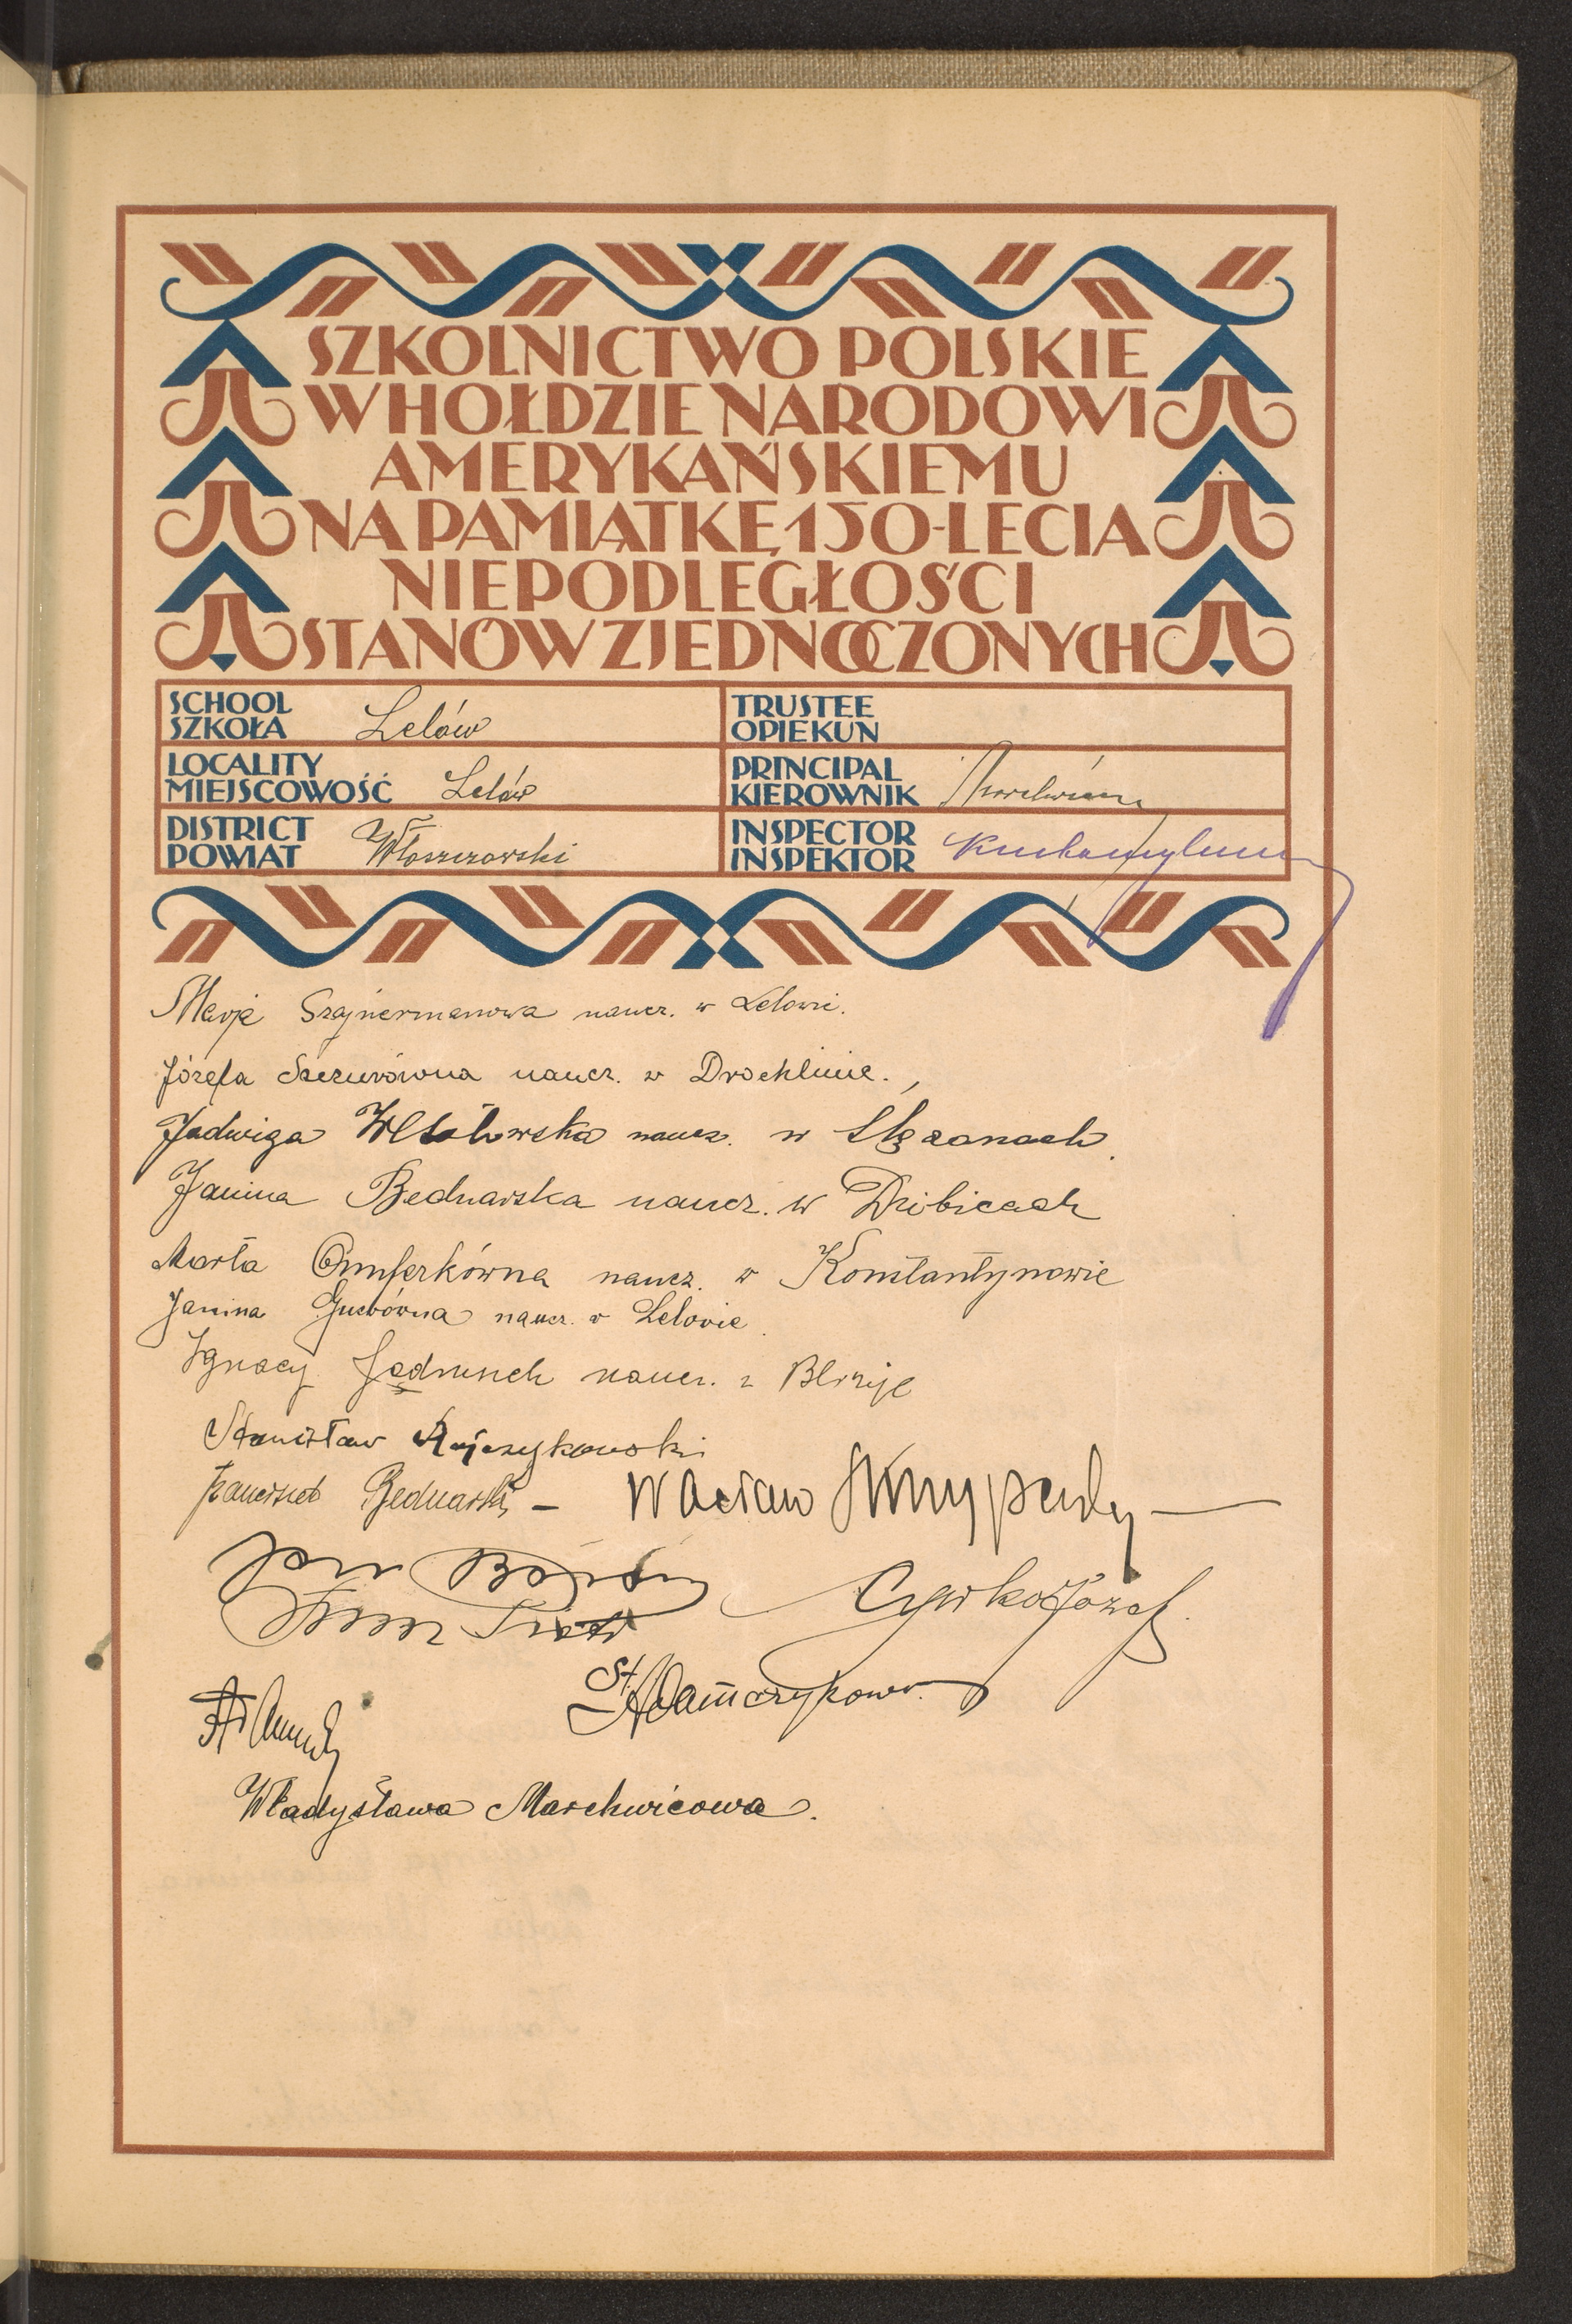 SZKOLNICTWO POLSKIE
W HOŁDZIE NARODOWI
AMERYKAŃSKIEMU
NA PAMIĄTKĘ 150-LECIA
NIEPODLEGŁOŚCI
STANÓW ZJEDNOCZONYCH
SCHOOL
SZKOŁA Lelów
TRUSTEE
OPIEKUN
LOCALITY
MIEJSCOWOŚĆ Lelów
PRINCIPAL
KIEROWNIK
DISTRICT
POWIAT Włoszczowski
INSPECTOR
INSPEKTOR
Marja Szajnermanowa naucz. w Lelowie.
Józefa Szczurówna naucz. w Drochlinie.
Jadwiga naucz. w Ślęzanach.
Janina Bednarska naucz. w Dzibicach
Marta naucz. w Konstantynowie
Janina naucz. w Lelowie
Ignacy naucz. z
Stanisław
Franciszek Bednarski – Wacław
Jan
Cywka Józef
St. Adamczykowa
Władysława Marchwicowa.